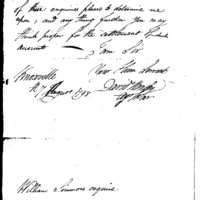 of these enquiries please to determine me
upon, and any thing further you may
think proper for the settlement of
accounts
I am Sir
Knoxville Your Hum Servant
August 1798 David Henley
William Simmons esquire